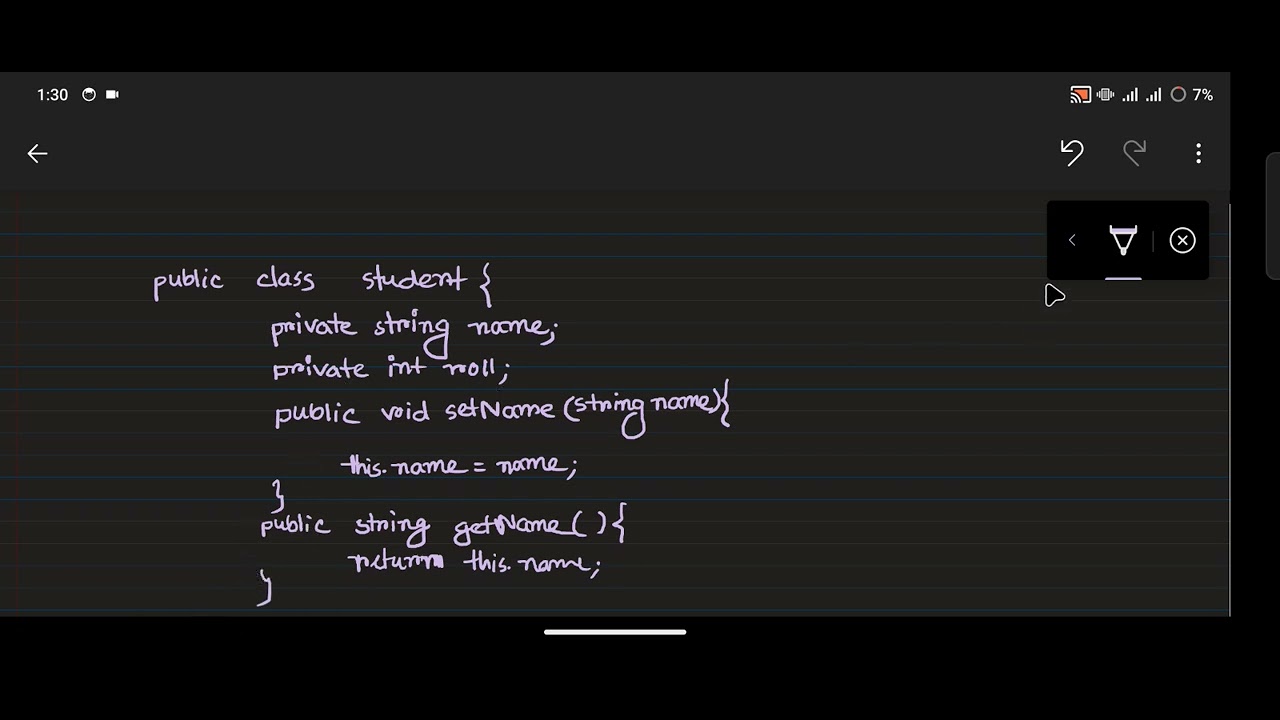 1:30
7%
public class student {
private string name;
private int roll;
public void setName (string name) {
this.name = name;
}
public string getName ( ) {
return this.name;
}